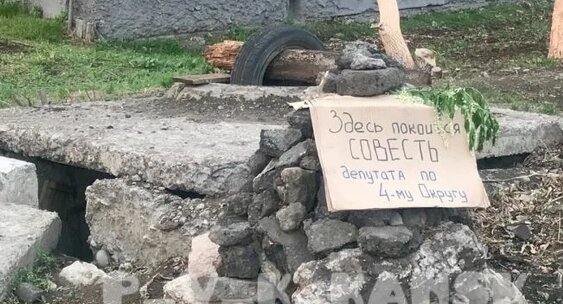 Здесь покоится
СОВЕСТЬ
депутата по
4-му Округу